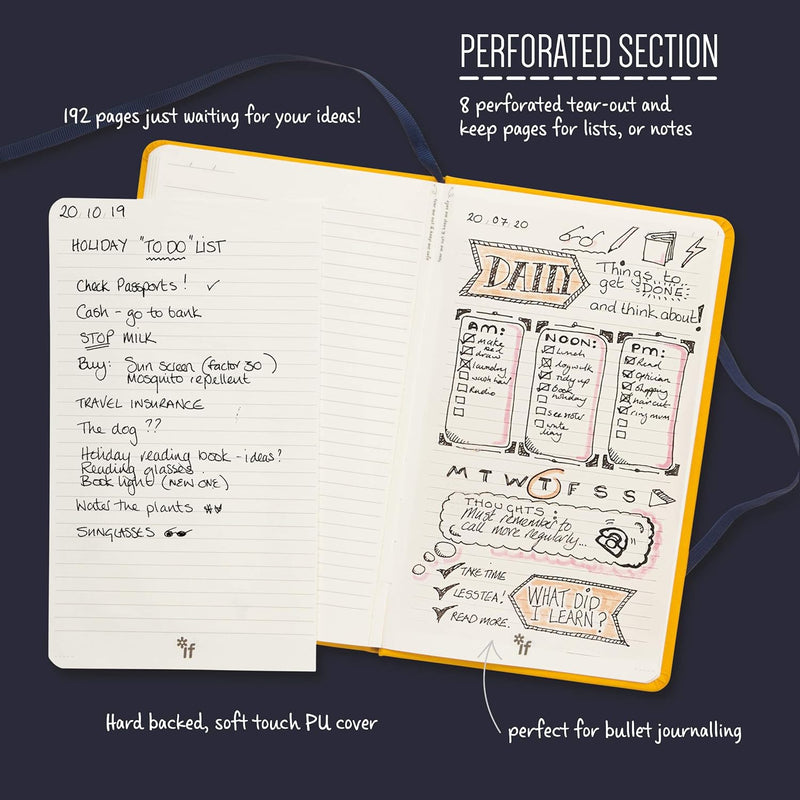 PERFORATED SECTION
8 perforated tear-out and
keep pages for lists, or notes
192 pages just waiting for your ideas!
20/10/19
HOLIDAY "TO DO" LIST
Check Passports! ✓
Cash - go to bank
STOP MILK
Buy: Sun screen (factor 30)
Mosquito repellent
TRAVEL INSURANCE
The dog ??
Holiday reading book - ideas?
Reading glasses.
Book light (NEW ONE)
Water the plants
SUNGLASSES
*if
20/07/20
DAILY
Things to
get DONE
and think about!
AM:
make
bed
draw
laundry
wash hair
Radio
NOON:
lunch
dogwalk
Tidy up
Book
see
write
PM:
Read
Optician
Shopping
haircut
ring mum
M T W T F S S
THOUGHTS:
Must remember to
call more regularly...
TAKE TIME
LESS TEA!
READ MORE.
WHAT DID
I LEARN?
*if
Hard backed, soft touch PU cover
perfect for bullet journalling